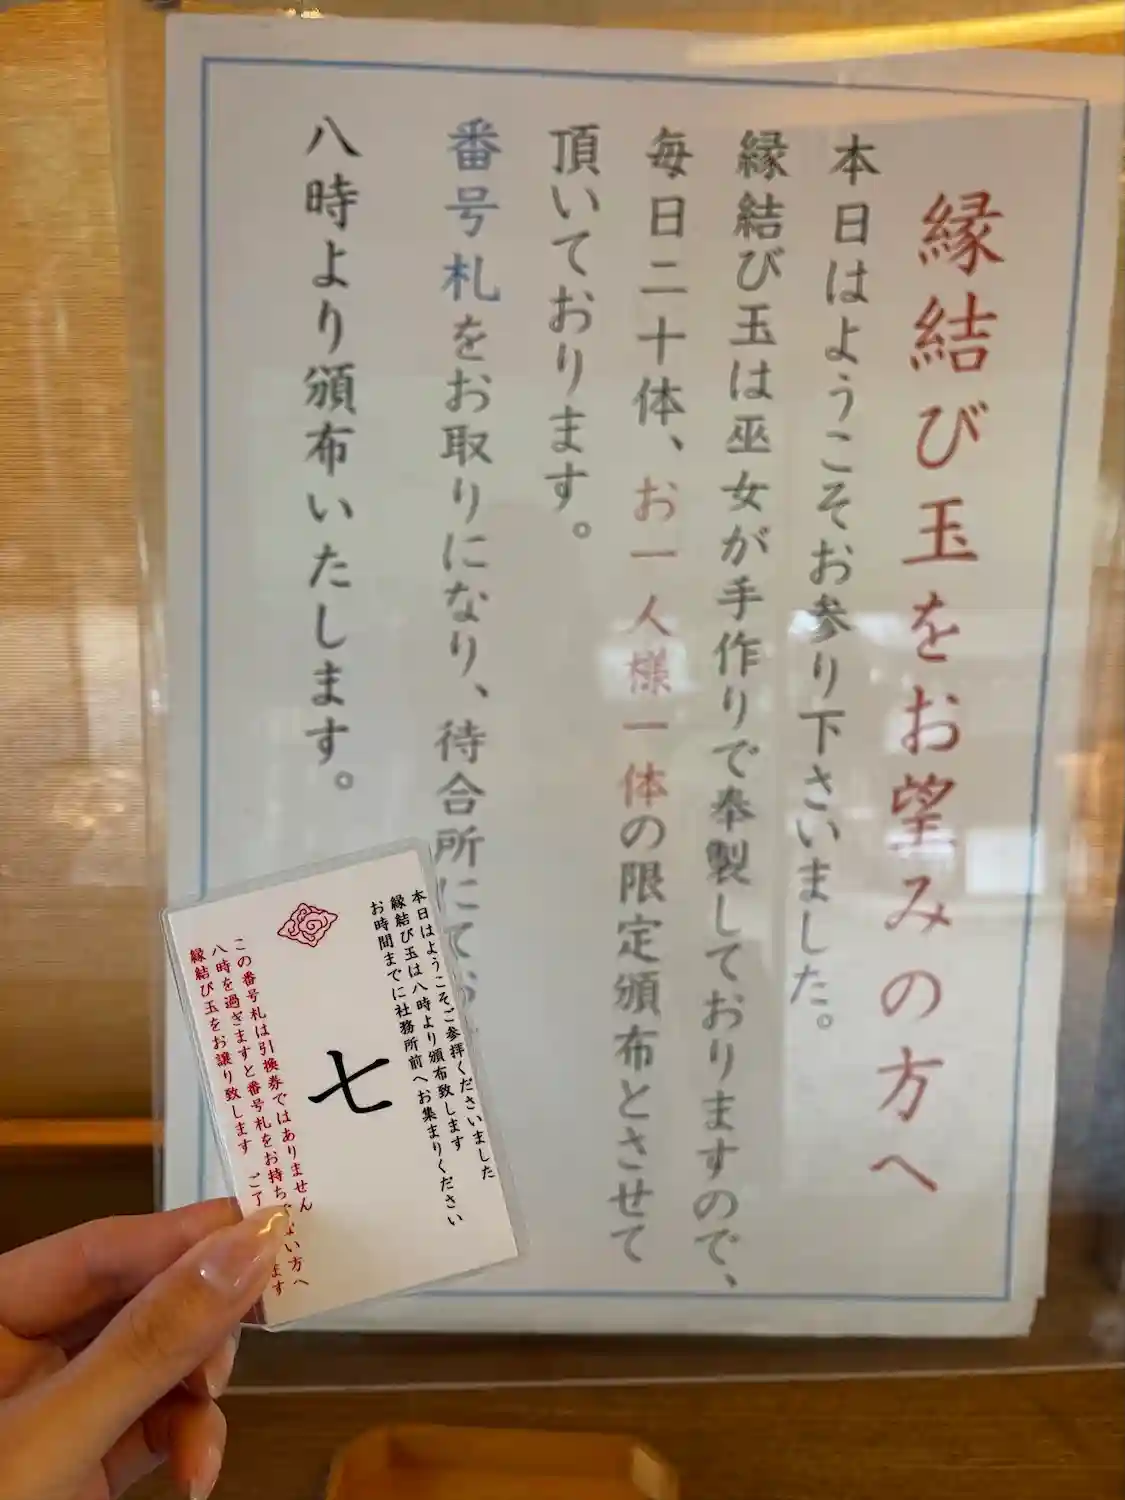 縁結び玉をお望みの方へ
本日はようこそお参り下さいました。
縁結び玉は巫女が手作りで奉製しておりますので、
毎日二十体、お一人様一体の限定頒布とさせて
頂いております。
番号札をお取りになり、待合所にてお
八時より頒布いたします。
本日はようこそご参拝くださいました
縁結び玉は八時より頒布致します
お時間までに社務所前へお集まりください
七
この番号札は引換券ではありません
八時を過ぎますと番号札をお持ちでない方へ
縁結び玉をお譲り致します ご了 ます